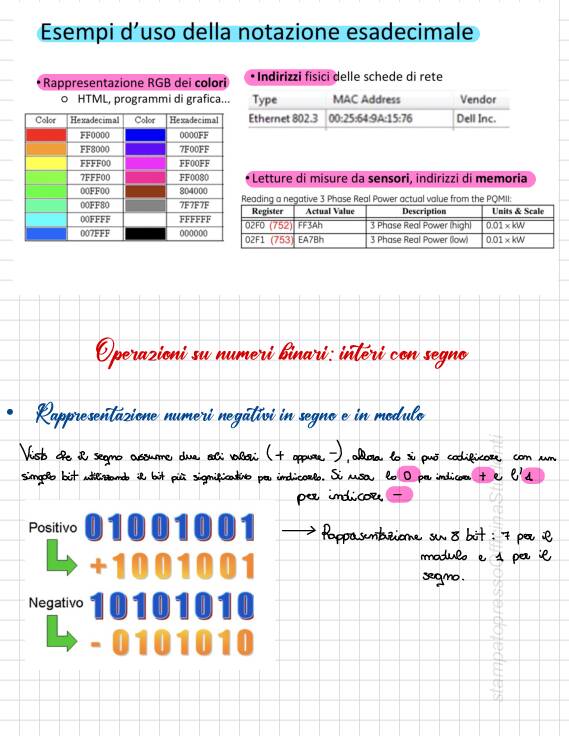 Esempi d'uso della notazione esadecimale
• Rappresentazione RGB dei colori
o HTML, programmi di grafica...
Color Hexadecimal Color Hexadecimal
FF0000 0000FF
FF8000 7F00FF
FFFF00 FF00FF
7FFF00 FF0080
00FF00 804000
00FF80 7F7F7F
00FFFF FFFFFF
007FFF 000000
• Indirizzi fisici delle schede di rete
Type MAC Address Vendor
Ethernet 802.3 00:25:64:9A:15:76 Dell Inc.
• Letture di misure da sensori, indirizzi di memoria
Reading a negative 3 Phase Real Power actual value from the PQMII:
Register Actual Value Description Units & Scale
02F0 (752) FF3Ah 3 Phase Real Power (high) 0.01 × kW
02F1 (753) EA7Bh 3 Phase Real Power (low) 0.01 × kW
Operazioni su numeri binari: interi con segno
• Rappresentazione numeri negativi in segno e in modulo
Visto che il segno assume due soli valori (+ oppure -), allora lo si può codificare con un
singolo bit utilizzando il bit più significativo per indicarlo. Si usa lo 0 per indicare + e l'1
per indicare -
Positivo 01001001
+1001001
Negativo 10101010
- 0101010
→ Rappresentazione su 8 bit: 7 per il
modulo e 1 per il
segno.